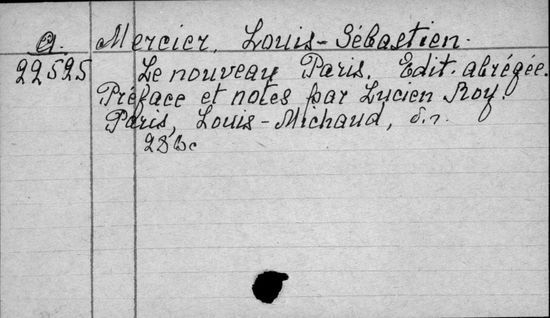 a. Mercier, Louis-Sébastien.
22525 Le nouveau Paris. Edit. abrégée.
Préface et notes par Lucien Roy.
Paris, Louis-Michaud, s.
28